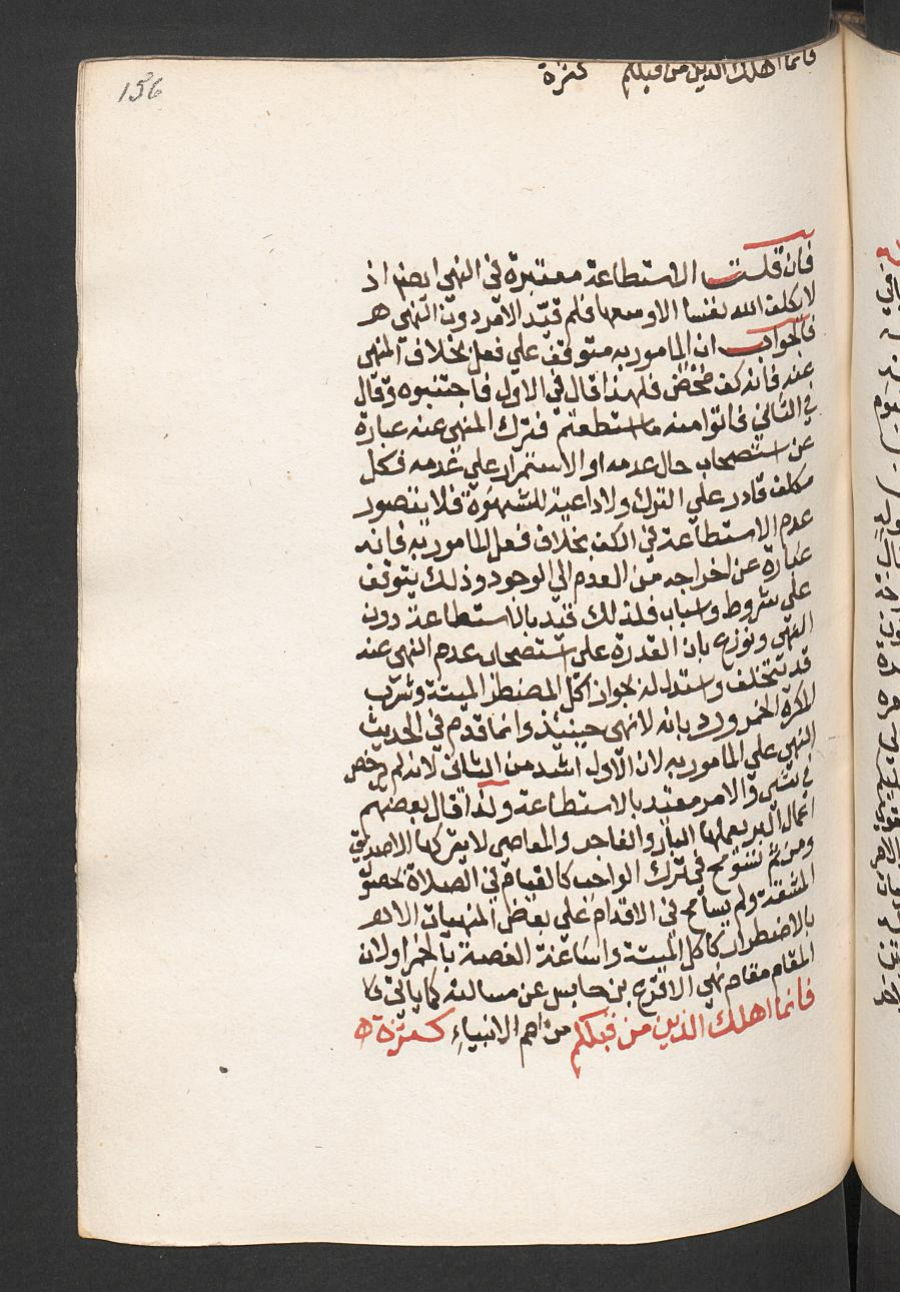 156
فانما اهلك الذين من قبلكم كثرة
فان قلت الاستطاعة معتبرة في النهي ايضا اذ
لا يكلف الله نفسا الا وسعها فلم قيد الامر دون النهي
فالجواب ان المامور به متوقف علي فعل بخلاف المنهي
عنه فانه كف محض فلهذا قال في الاول فاجتنبوه وقال
في الثاني فاتوا منه ما استطعتم فترك المنهي عنه عبارة
عن استصحاب حال عدمه او الاستمرار علي عدمه فكل
مكلف قادر علي الترك ولا داعية للشهوة فلا يتصور
عدم الاستطاعة في الكف بخلاف فعل المامور به فانه
عبارة عن اخراجه من العدم الي الوجود وذلك يتوقف
علي شروط واسباب فلذلك قيد بالاستطاعة دون
النهي ونوزع بان القدرة علي استصحاب عدم النهي عنه
قد تتخلف واستدل له بجواز اكل المضطر الميتة وشرب
المكره الخمر ورد بانه لا نهي حينئذ وانما قدم في الحديث
النهي علي المامور به لان الاول اشد من الثاني لانه لم يرخص
في شي والامر مقيد بالاستطاعة ولذا قال بعضهم
اعمال البر يعملها البار والفاجر والمعاصي لا يتركها الا صديق
ومن ثم تسومح في ترك الواجب كالقيام في الصلاة بحصول
المشقة ولم يسامح في الاقدام علي بعض المنهيات الا
بالاضطرار كاكل الميتة واساغة الغصة بالخمر او لان
المقام مقام نهي الاقرع بن حابس عن مسالته كما ياتي
فانما اهلك الذين من قبلكم من امم الانبياء كثرة